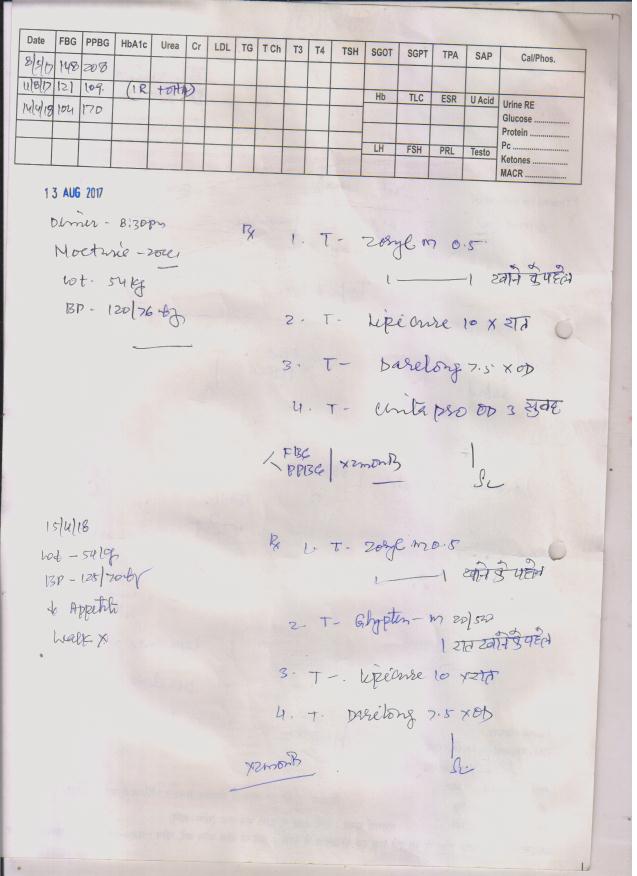 Date FBG PPBG HbA1c Urea Cr LDL TG T Ch T3 T4 TSH SGOT SGPT TPA SAP Cal/Phos.
8/5/17 148 208
11/8/17 121 109 (IR + OHA)
14/4/18 104 170
Hb TLC ESR U Acid
LH FSH PRL Testo
Urine RE
Glucose ..............
Protein ..............
Pc ..............
Ketones ..............
MACR ..............
13 AUG 2017
Dinner - 8:30pm
Wt. 54 kg
BP - 120/76
Rx 1. T- Zoryl m 0.5
1 ——— 1 खाने के पहले
2. T- Lipicure 10 x रात
3. T- Darelong 7.5 x OD
4. T- OD 3 सुबह
FBG
PPBG
x2month
15/4/18
Wt - 54 kg
BP - 125/70
↓ Appetite
Walk x
Rx 1. T- Zoryl m 0.5
1 ——— 1 खाने के पहले
2. T- Glypten-m 20/500
1 रात खाने के पहले
3. T-. Lipicure 10 x रात
4. T. Darelong 7.5 x OD
x2month